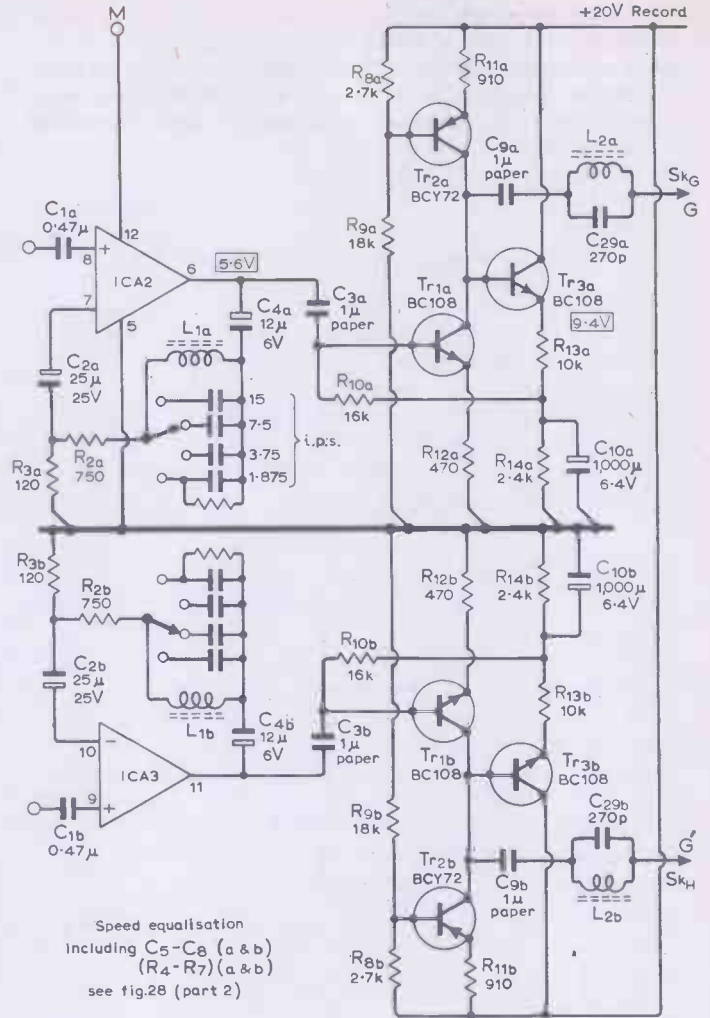 M
+20V Record
R8a
2·7k
R11a
910
Tr2a
BCY72
C9a
1μ
paper
L2a
SkG
G
C29a
270p
C1a
0·47μ
12
8
+
ICA2
6
5·6V
7
5
C4a
12μ
6V
C3a
1μ
paper
R9a
18k
Tr1a
BC108
Tr3a
BC108
9·4V
L1a
C2a
25μ
25V
15
7·5
3·75
1·875
i.p.s.
R10a
16k
R13a
10k
R3a
120
R2a
750
R12a
470
R14a
2·4k
C10a
1,000μ
6·4V
R3b
120
R2b
750
R12b
470
R14b
2·4k
C10b
1,000μ
6·4V
C2b
25μ
25V
L1b
C4b
12μ
6V
R10b
16k
C3b
1μ
paper
R13b
10k
Tr1b
BC108
Tr3b
BC108
10
-
ICA3
11
9
+
C1b
0·47μ
R9b
18k
C29b
270p
Tr2b
BCY72
C9b
1μ
paper
G'
SkH
L2b
Speed equalisation
including C5-C8 (a & b)
(R4-R7)(a & b)
see fig.28 (part 2)
R8b
2·7k
R11b
910